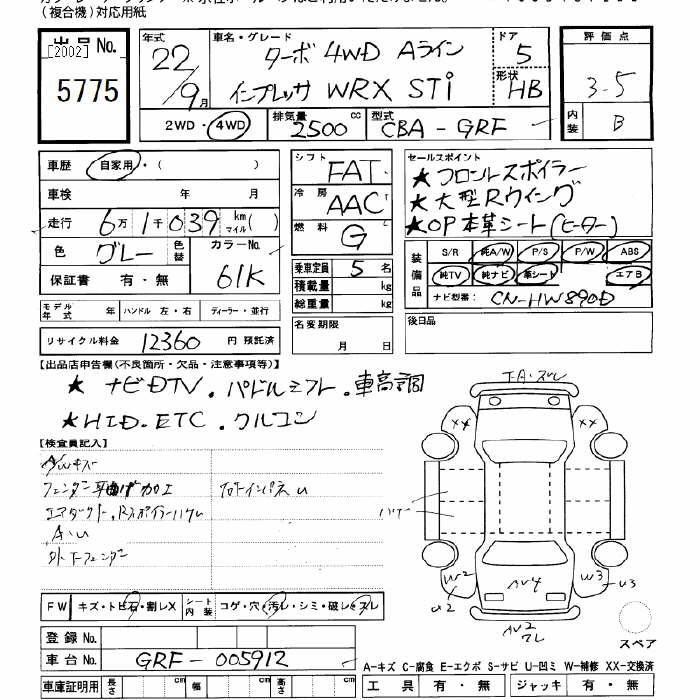 (複合機)対応用紙
出品No.
[2002]
5775
年式 22/9月
車名・グレード ターボ 4WD Aライン
インプレッサ WRX STi
ドア 5
形状 HB
評価点 3-5
内装 B
2WD・4WD
排気量 2500 cc
型式 CBA-GRF
車歴 自家用・( )
車検 年 月
走行 6万1千039 km マイル( )
色 グレー 色替 カラーNo. 61K
保証書 有・無
モデル年式 年 ハンドル 左・右 ディーラー・並行
リサイクル料金 12360 円 預託済
シフト FAT
冷房 AAC
燃料 G
乗車定員 5 名
積載量 kg
総重量 kg
名変期限
月 日
セールスポイント
★フロントスポイラー
★大型Rウイング
★OP本革シート(ヒーター)
装備品 S/R 純A/W P/S P/W ABS
純TV 純ナビ 革シート エアB
ナビ型番: CN-HW890D
後日品
【出品店申告欄(不良箇所・欠品・注意事項等)】
★ ナビDTV.パドルシフト.車高調
★HID.ETC.クルコン
【検査員記入】
A/Wキズ
フェンダー耳曲げ加工 フロートインパネU
エアダクト.Rスポイラーハゲ
A.U
T.A.ズレ
XX XX
ハゲ
W2 U2 AU4 W3 U3
AU2
ワレ
スペア
FW キズ・トビ石・割レX シート内装 コゲ・穴・汚レ・シミ・破レ・スレ
登録No.
車台No. GRF-005912
A-キズ C-腐食 E-エクボ S-サビ U-凹ミ W-補修 XX-交換済
車庫証明用 長さ cm 幅 cm 高さ cm
工具 有・無 ジャッキ 有・無